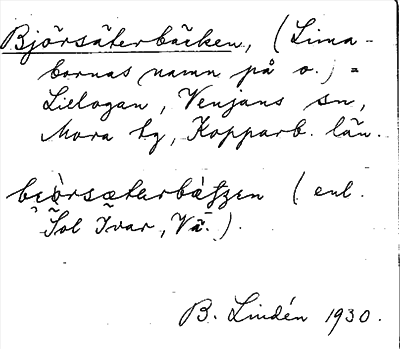 Björsäterbäcken, (Lima-
bornas namn på o.) =
Lielogan, Venjans sn,
Mora tg, Kopparb. län.
(enl.
Sol Ivar, Vä.).
B. Lindén 1930.